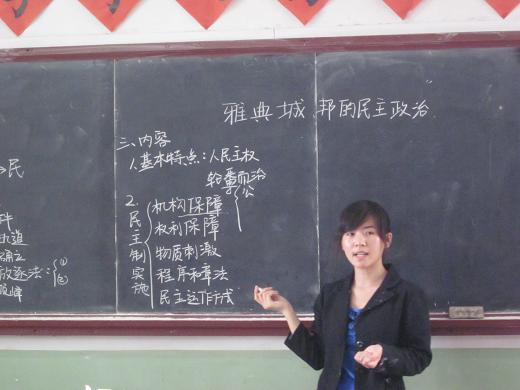 雅典城邦的民主政治
民
三、内容
1.基本特点：人民主权
轮番而治
2.
民主制实施
机构保障
公
权利保障
物质刺激
程序和算法
民主运作
件
确立
放逐法：
①
②